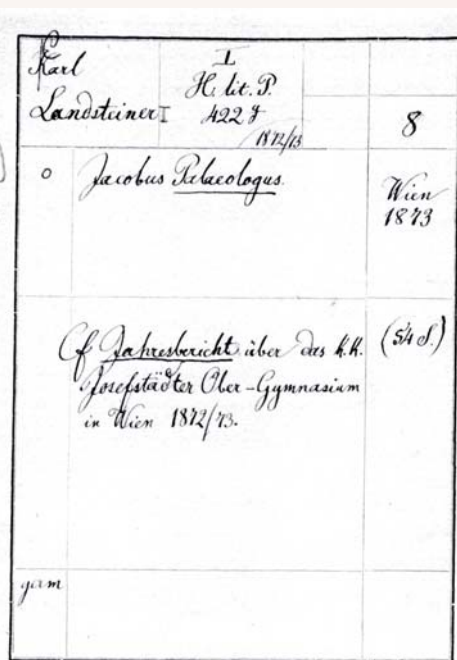 Karl
Landsteiner I
I
H. lit. P.
422 f
1872/73
8
o
Jacobus Palaeologus.
Wien
1873
Cf Jahresbericht über das k.k.
Josefstädter Ober-Gymnasium
in Wien 1872/73.
(54 S.)
germ